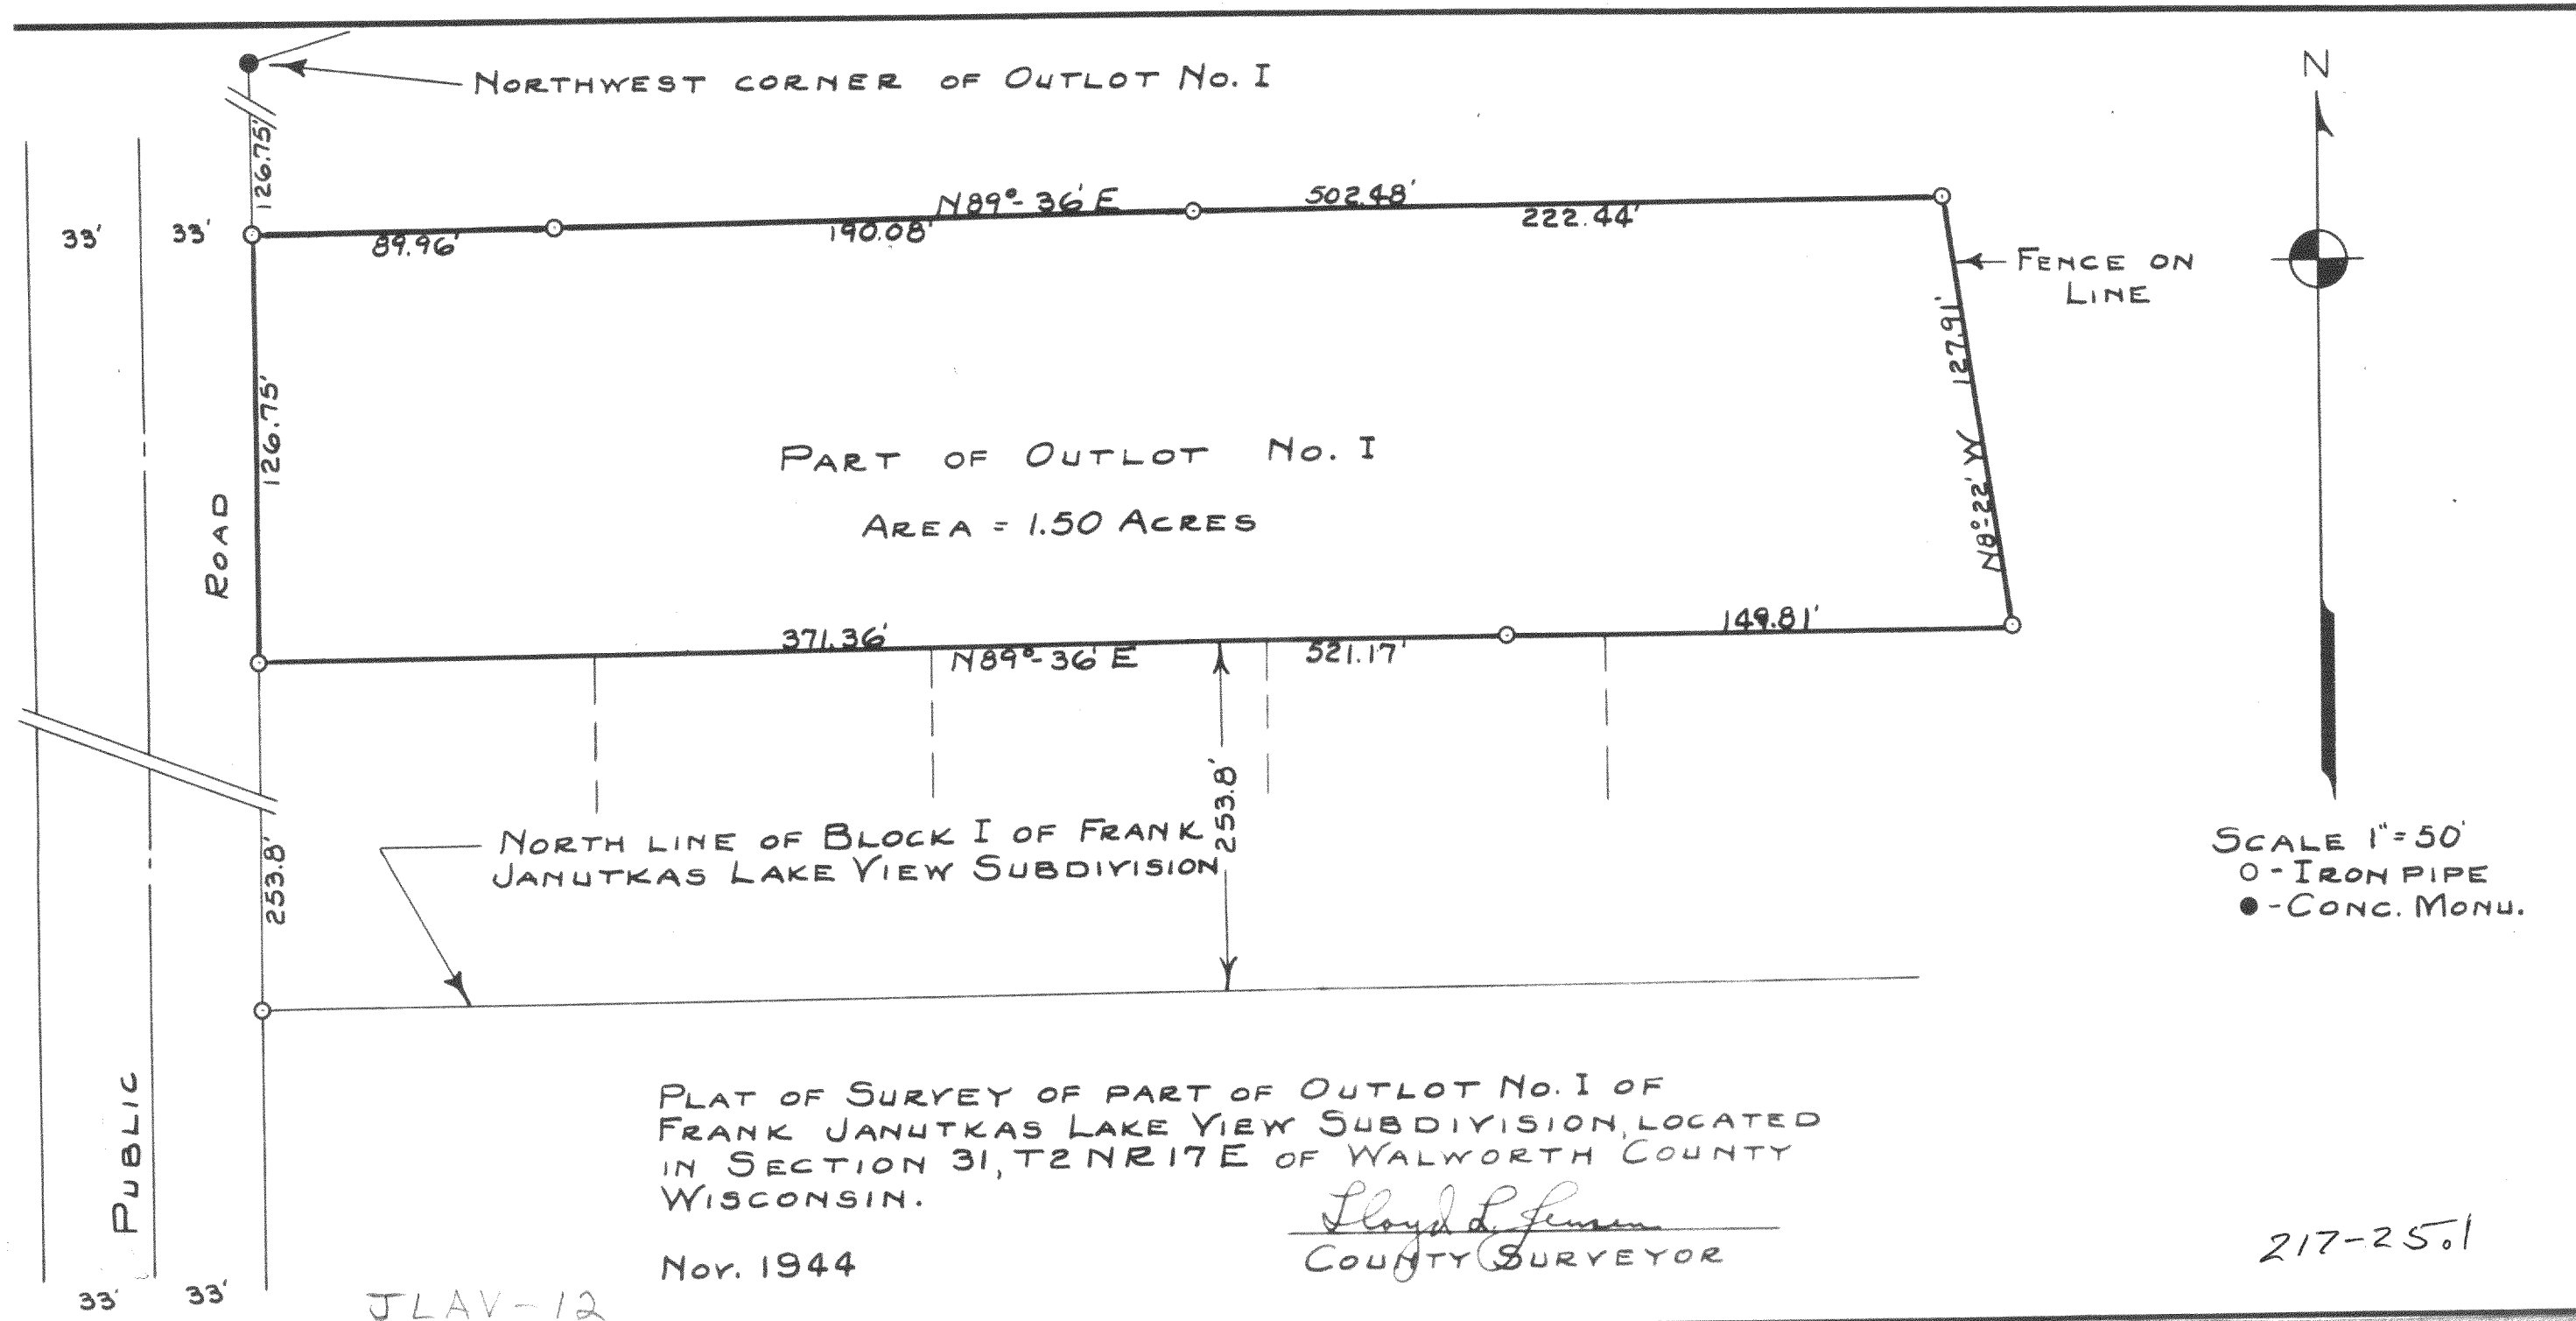 NORTHWEST CORNER OF OUTLOT No. I
N
126.75'
N89°-36' E
502.48'
33'
33'
89.96'
190.08'
222.44'
FENCE ON
LINE
127.91'
N8°-22' W
126.75'
PART OF OUTLOT No. I
AREA = 1.50 ACRES
ROAD
371.36'
N89°-36' E
521.17'
149.81'
253.8'
253.8'
NORTH LINE OF BLOCK I OF FRANK
JANUTKAS LAKE VIEW SUBDIVISION
SCALE 1"=50'
O - IRON PIPE
● - CONC. MONU.
PUBLIC
PLAT OF SURVEY OF PART OF OUTLOT No. I OF
FRANK JANUTKAS LAKE VIEW SUBDIVISION, LOCATED
IN SECTION 31, T2NR17E OF WALWORTH COUNTY
WISCONSIN.
Lloyd L. Jensen
COUNTY SURVEYOR
Nov. 1944
217-25.1
33'
33'
JLAV-12